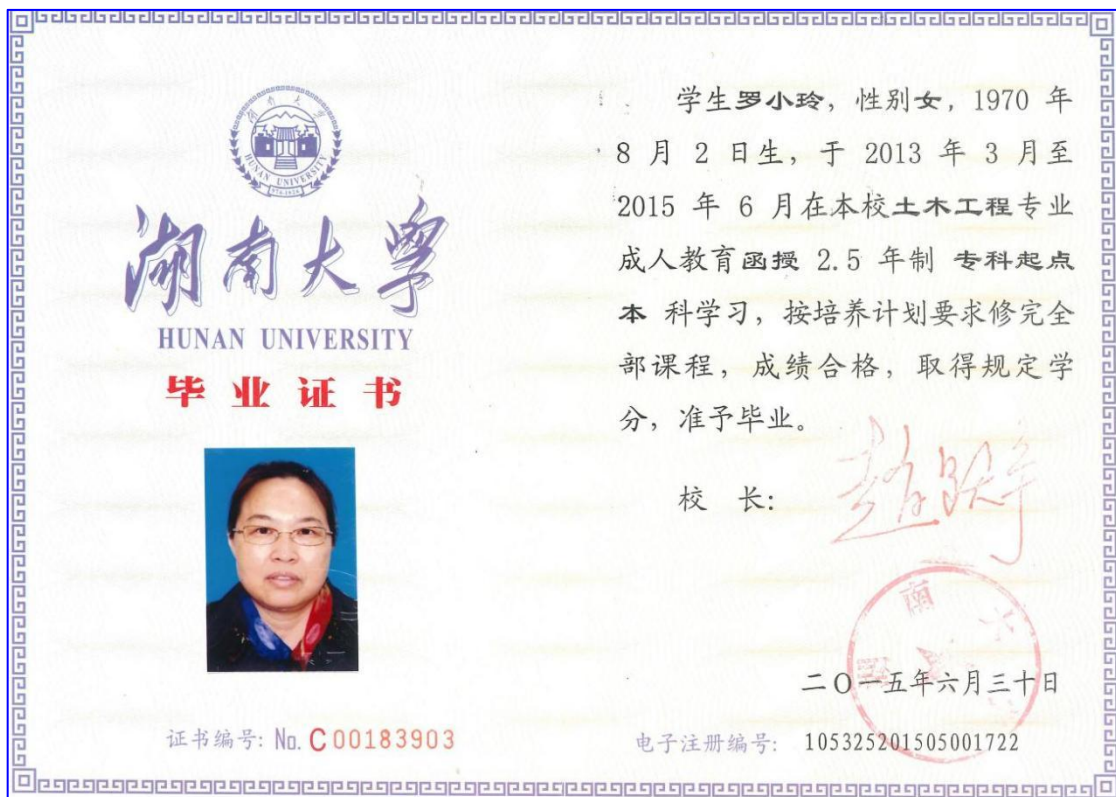 湖南大学
HUNAN UNIVERSITY
毕业证书
证书编号: No. C 00183903
学生罗小玲，性别女，1970 年
8 月 2 日生，于 2013 年 3 月至
2015 年 6 月在本校土木工程专业
成人教育函授 2.5 年制 专科起点
本 科学习，按培养计划要求修完全
部课程，成绩合格，取得规定学
分，准予毕业。
校 长：
二〇一五年六月三十日
电子注册编号: 105325201505001722